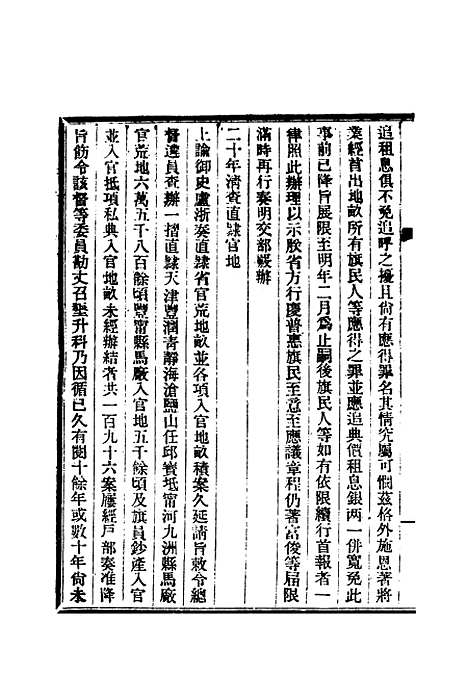 追租息俱不免追呼之擾且尙有應得罪名其情究屬可憫茲格外施恩著將
業經首出地畝所有旗民人等應得之罪並應追典價租息銀兩一併寬免此
事前已降旨展限至明年二月爲止嗣後旗民人等如有依限續行首報者一
律照此辦理以示朕省方行慶普惠旗民至意至應議章程仍著富俊等屆限
滿時再行奏明交部嚴辦
二十年淸查直隸官地
上諭御史盧浙奏直隸省官荒地畝並各項入官地畝積案久延請旨敕令總
督遴員查辦一摺直隸天津豐潤靑靜海滄鹽山任邱寶坻甯河九洲縣馬廠
官荒地六萬五千八百餘頃豐甯縣馬廠入官地五千餘頃及旗員鈔產入官
並入官抵項私典入官地畝未經辦結者共一百九十六案屢經戶部奏准降
旨飭令該督等委員勘丈召墾升科乃因循已久有閱十餘年或數十年尙未